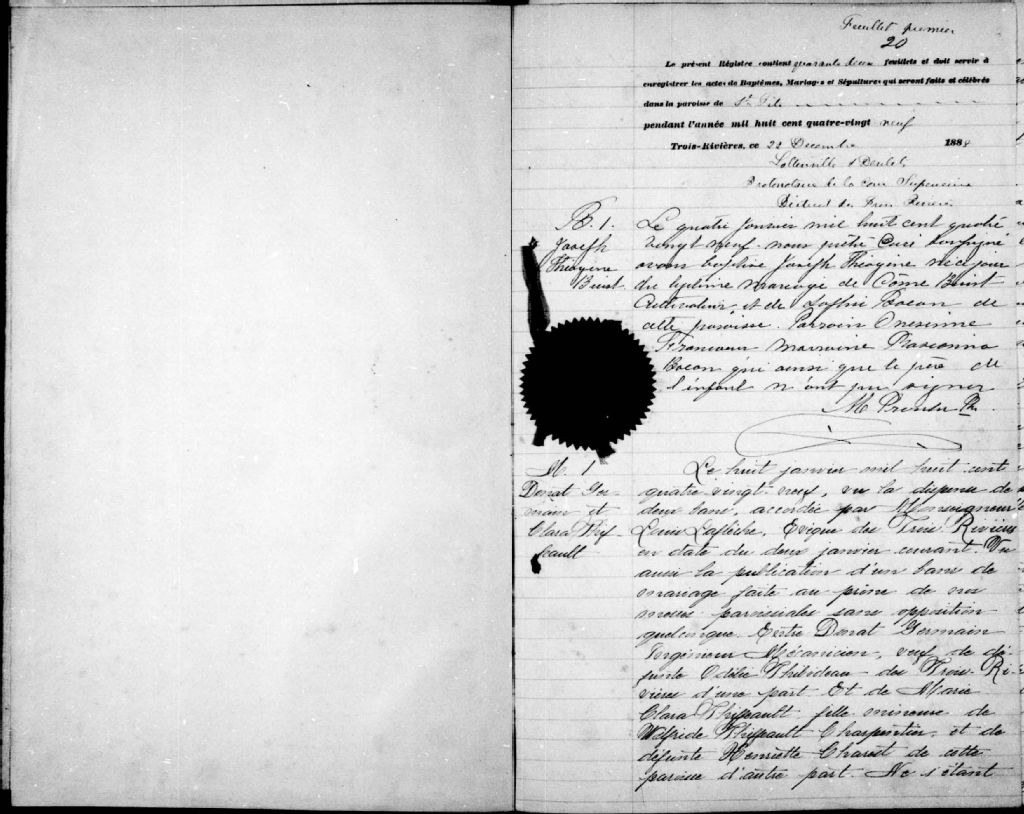 Feuillet premier
20
Le présent Régistre contient quarante deux feuillets et doit servir à
enregistrer les actes de Baptêmes, Mariages et Sépultures qui seront faits et célébrés
dans la paroisse de St. Tite
pendant l'année mil huit cent quatre-vingt neuf
Trois-Rivières, ce 22 Décembre 1888
Protonotaire de la Cour Supérieure
District des Trois Rivières
B. 1.
Joseph
Théogène
Benoit
Le quatre janvier mil huit cent quatre
vingt neuf nous prêtre Curé soussigné
avons baptisé Joseph Théogène né ce jour
du légitime mariage de Côme
Cultivateur, et de Bacon de
cette paroisse. Parrain Onésime
Francoeur marraine
Bacon qui ainsi que le père de
l'enfant n'ont pu signer
M. 1
Donat Ger-
main et
Clara Thif-
feault
Le huit janvier mil huit cent
quatre vingt neuf, vu la dispense de
deux bans, accordée par Monseigneur
Louis Laflèche, Evêque des Trois Rivières
en date du deux janvier courant. Vu
aussi la publication d'un bans de
mariage faite au prône de nos
messes paroissiales sans opposition
quelconque. Entre Donat Germain
Ingénieur Mécanicien, veuf de dé-
funte Odélie Thibodeau des Trois Ri-
vières d'une part. Et de Marie
Clara Thiffault fille mineure de
Wilfride Thiffault Charpentier, et de
défunte Henriette Charest de cette
paroisse d'autre part. Ne s'étant